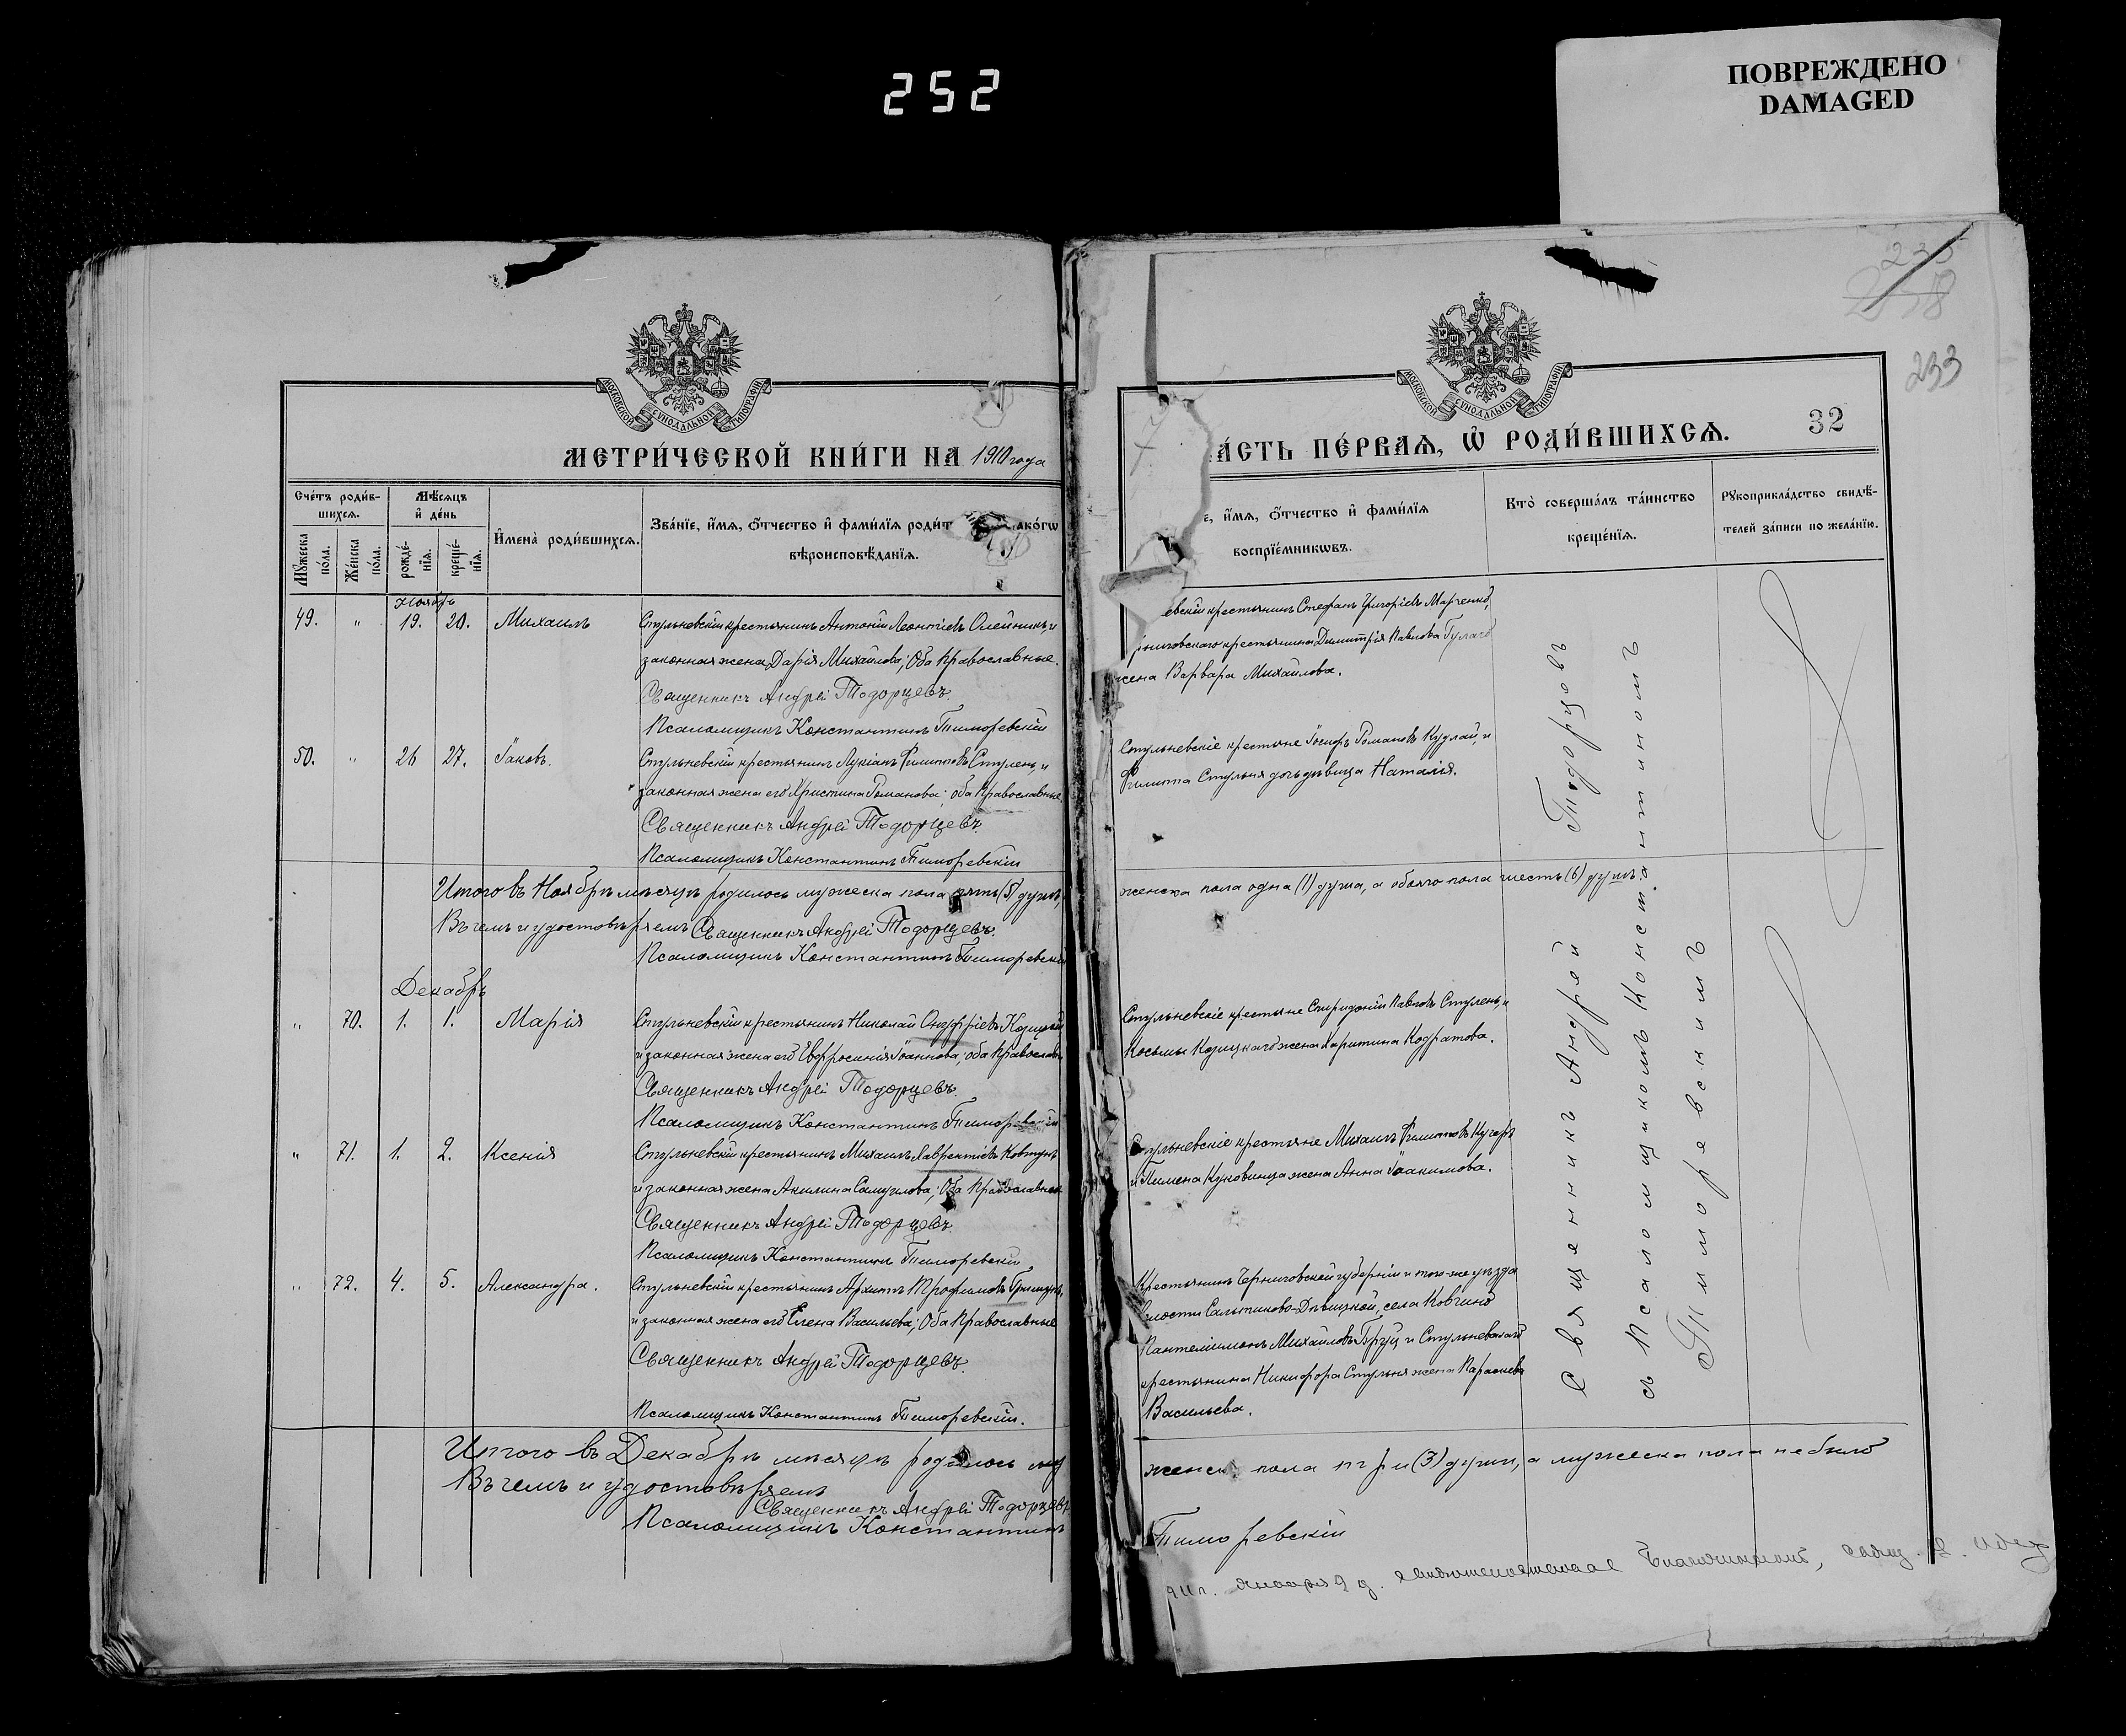 252
ПОВРЕЖДЕНО
DAMAGED
233
32
МОСКОВСКОЙ СѴНОДАЛЬНОЙ ТИПОГРАФІИ
МЕТРИ́ЧЕСКОЙ КНИ́ГИ НА 1910 года
Сче́тъ роди́в-
шихсѧ.
Мѣ́сѧцъ
и҆ де́нь
Мꙋ́жеска
по́ла.
Же́нска
по́ла.
рожде́-
нїѧ.
креще́-
нїѧ.
И҆мена̀ роди́вшихсѧ.
Зва́нїе, и҆́мѧ, ѻ҆́тчество и҆ фами́лїѧ роди́т ако́гѡ
вѣроисповѣ́данїѧ.
Ноябрь
49. " 19. 20. Михаилъ
Стульневскій крестьянинъ Антоній Леонтіевъ Олейникъ, и
законная жена Дарія Михайлова; Оба Православные.
Священникъ Андрей Тодорцевъ
Псаломщикъ Константинъ Тиморевскій
50. " 26 27. Іаковъ.
Стульневскій крестьянинъ Лукіанъ Филиповъ Стулень, и
законная жена его Христина Романова; оба Православные
Священникъ Андрей Тодорцевъ
Псаломщикъ Константинъ Тиморевскій
Итого въ Ноябрѣ мѣсяцѣ родилось мужеска пола пять (5) душъ,
Въ чемъ и удостовѣряемъ Священникъ Андрей Тодорцевъ.
Псаломщикъ Константинъ Тиморевскій
Декабрь
" 70. 1. 1. Марія
Стульневскій крестьянинъ Николай Онуфріевъ Козицкій
и законная жена его Евфросинія Іоаннова; оба Православн
Священникъ Андрей Тодорцевъ.
Псаломщикъ Константинъ Тиморевскій
" 71. 1. 2. Ксенія
Стульневскій крестьянинъ Михаилъ Лаврентіевъ Ковтунъ
и законная жена Акилина Самуилова; Оба Православные
Священникъ Андрей Тодорцевъ
Псаломщикъ Константинъ Тиморевскій
" 72. 4. 5. Александра.
Стульневскій крестьянинъ Архипъ Трофимовъ
и законная жена его Елена Васильева; Оба Православные
Священникъ Андрей Тодорцевъ.
Псаломщикъ Константинъ Тиморевскій.
Итого въ Декабрѣ мѣсяцѣ родилось
Въ чемъ и удостовѣряемъ
Священникъ Андрей Тодорцевъ
Псаломщикъ Константинъ
МОСКОВСКОЙ СѴНОДАЛЬНОЙ ТИПОГРАФІИ
А́СТЬ ПЕ́РВАѦ, Ѡ҆ РОДИ́ВШИХСѦ.
е, и҆́мѧ, ѻ҆́тчество и҆ фами́лїѧ
воспрїе́мникѡвъ.
Кто̀ соверша́лъ та́инство
креще́нїѧ.
Рꙋкоприкла́дство свидѣ́-
телей за́писи по жела́нїю.
евскій крестьянинъ Стефанъ Григоріевъ Марченко,
рниговскаго крестьянина Димитрія Павлова
жена Варвара Михайлова.
Стульневскіе крестьяне Іосифъ Романовъ Кудлай, и
Филипа Стульня дочь дѣвица Наталія.
женска пола одна (1) душа, а обоего пола шесть (6) душъ.
Стульневскіе крестьяне Спиридоній Павловъ Стулень, и
Косьмы Козицкаго жена Харитина Кодратова.
Стульневскіе крестьяне Михаилъ Филиповъ Кучеръ
и Пимена Куковица жена Анна Іоакимова.
Крестьянинъ Черниговской губерніи и того-же уѣзда
волости Салтыково-Дѣвицкой, села Ковчино
Пантелимонъ Михайловъ и Стульневскаго
крестьянина Никифора Стульня жена Параскева
Васильева.
женска пола три (3) души, а мужеска пола не было
Тиморевскій
Священникъ Андрей Тодорцовъ
съ Псаломщикомъ Константиномъ
Тиморевскимъ
января 9 д.